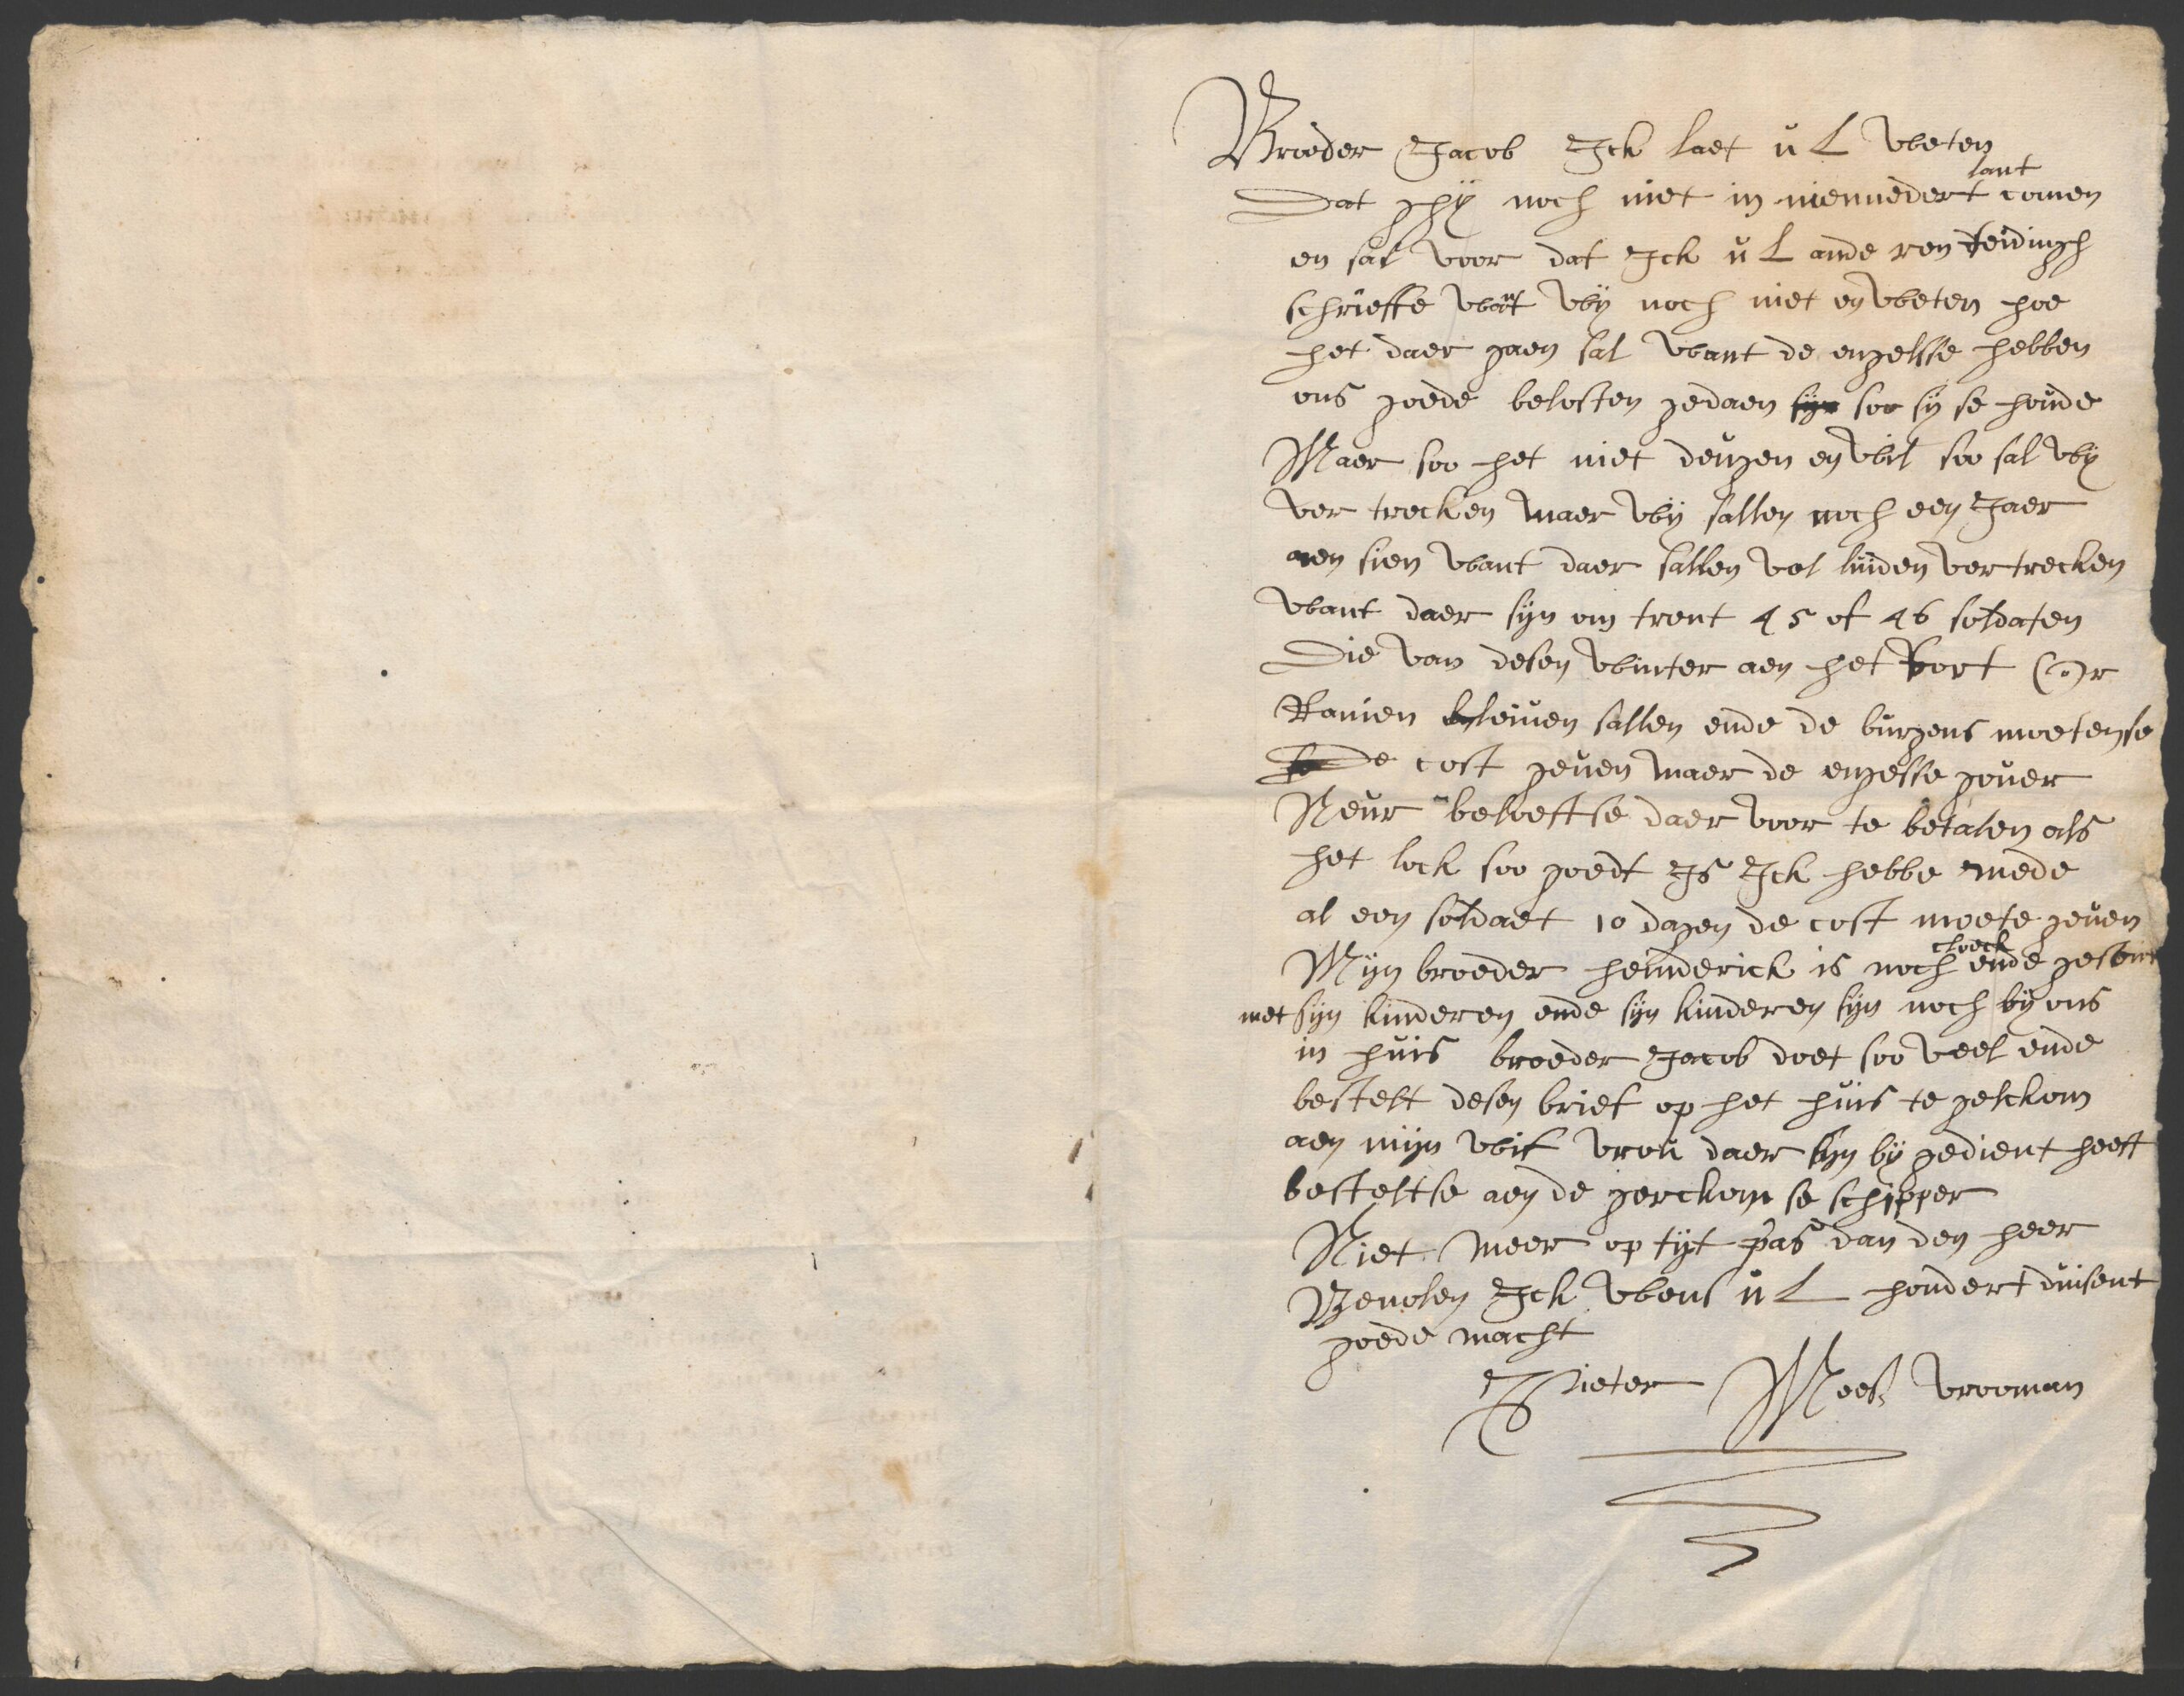 Broeder Jacob Ick laet u L weten
dat ghij noch niet in nieunedert lant comen
en sal voor dat Ick u L ande ren teidingh
schrieffe want wij noch niet en weten hoe
het daer gaen sal want de engelsse hebben
ons goede beloften gedaen soo sij se houde
Maer soo het niet deugen en wil soo sal wij
ver trecken maer wij sallen noch een Jaer
aen sien want daer sallen vol luiden vertrecken
want daer sijn om trent 45 of 46 soldaten
die van desen winter aen het Fort Or
Ranien bleiuen sallen ende de burgens moetense
de cost geuen maer de engelsse gouer
Neur beloeftse daer voor te betalen als
het lock soo goedt Is Ick hebbe mede
al een soldaet 10 dagen de cost moete geuen
Mijn broeder heinderick is noch cloeck ende gesont
met sijn kinderen ende sijn kinderen sijn noch bij ons
in huis broeder Jacob doet soo veel ende
bestelt desen brief op het huis te gelckom
aen mijn wif vrou daer sijn bij gedient heeft
besteltse aen de gerckom se schipper
Niet meer op tijt pas dan den heer
Beuolen Ick wens u L hondert duisent
goede nacht
Pieter Mees Vrooman